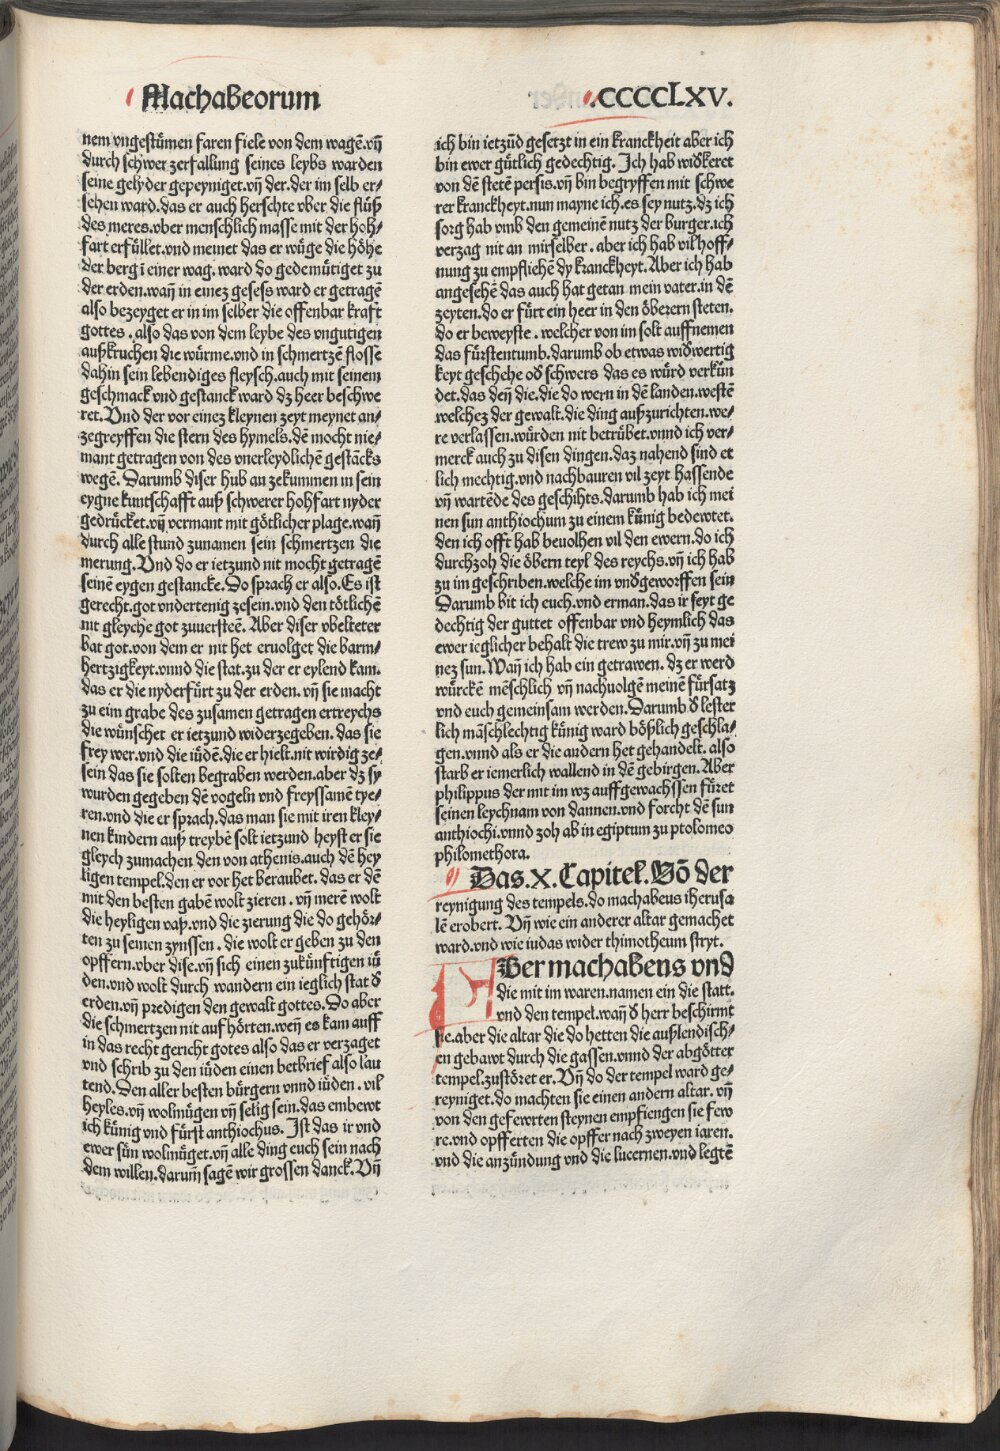 Machabeorum
.CCCCLXV.
nem vngestümen faren fiele von dem wagē.vñ
durch schwer zerfallung seines leybs warden
seine gelyder gepeyniget.vñ der.der im selb er-
sehen ward.das er auch herschte vber die flüß
des meres.vber menschlich masse mit der hoh-
fart erfüllet.vnd meinet das er wüge die höhe
der berg ī einer wag. ward do gedemütiget zu
der erden.wañ in einez gesess ward er getragē
also bezeyget er in im selber die offenbar kraft
gottes . also das von dem leybe des vngutigen
außkruchen die würme.vnd in schmertzē flosse
dahin sein lebendiges fleysch.auch mit seinem
geschmack vnd gestanck ward dz heer beschwe
ret. Vnd der vor einez kleynen zeyt meynet an-
zegreyffen die stern des hymels.dē mocht nie-
mant getragen von des vnerleydlichē gestācks
wegē. Darumb diser hub an zekummen in sein
eygne kuntschafft auß schwerer hohfart nyder
gedrücket.vñ vermant mit götlicher plage.wañ
durch alle stund zunamen sein schmertzen die
merung. Vnd do er ietzund nit mocht getragē
seinē eygen gestancke. Do sprach er also. Es ist
gerecht.got vndertenig zesein.vnd den tötlichē
nit gleyche got zuuersteē. Aber diser vbelteter
bat got.von dem er nit het eruolget die barm-
hertzigkeyt.vnnd die stat.zu der er eylend kam.
das er die nyderfürt zu der erden. vñ sie macht
zu eim grabe des zusamen getragen ertreychs
die wünschet er ietzund widerzegeben. das sie
frey wer.vnd die iüdē.die er hielt.nit wirdig ze-
sein das sie solten begraben werden.aber dz sy
wurden gegeben dē vogeln vnd freyssamē tye-
ren.vnd die er sprach.das man sie mit iren kley-
nen kindern auß treybē solt ietzund heyst er sie
gleych zumachen den von athenis.auch dē hey
ligen tempel.den er vor het beraubet. das er dē
mit den besten gabē wolt zieren . vñ merē wolt
die heyligen vaß.vnd die zierung die do gehör-
ten zu seinen zynssen . die wolt er geben zu den
opffern.vber dise.vñ sich einen zukünftigen iü
den.vnd wolt durch wandern ein ieglich stat d̕
erden.vñ predigen den gewalt gottes. Do aber
die schmertzen nit auf hörten.weñ es kam auff
in das recht gericht gotes also das er verzaget
vnd schrib zu den iüden einen betbrief also lau
tend. Den aller besten bürgern vnnd iüden . vil
heyles.vñ wolmügen vñ selig sein.das embewt
ich künig vnd fürst anthiochus. Ist das ir vnd
ewer sün wolmüget.vñ alle ding euch sein nach
dem willen.darum̄ sagē wir grossen danck. Vñ
ich bin ietzūd gesetzt in ein kranckheit aber ich
bin ewer gütlich gedechtig. Ich hab wid̕keret
von dē stetē persis.vñ bin begryffen mit schwe
rer kranckheyt.nun mayne ich.es sey nutz.dz ich
sorg hab vmb den gemeinē nutz der burger.ich
verzag nit an mirselber . aber ich hab vil hoff-
nung zu empfliehē dy kranckheyt. Aber ich hab
angesehē das auch hat getan mein vater.in dē
zeyten.do er fürt ein heer in den öberern steten.
do er beweyste . welcher von im solt auffnemen
das fürstentumb.darumb ob etwas wid̕wertig
keyt geschehe od̕ schwers das es würd verkün
det.das deñ die.die do wern in dē landen.westē
welchez der gewalt.die ding außzurichten.we-
re verlassen.würden nit betrübet.vnnd ich ver-
merck auch zu disen dingen.daz nahend sind et
lich mechtig.vnd nachbauren vil zeyt hassende
vñ wartēde des geschihts.darumb hab ich mei
nen sun anthiochum zu einem künig bedewtet.
den ich offt hab beuolhen vil den ewern.do ich
durchzoh die öbern teyl des reychs.vñ ich hab
zu im geschriben.welche im vnd̕geworffen sein
Darumb bit ich euch.vnd erman.das ir seyt ge
dechtig der guttet offenbar vnd heymlich das
ewer ieglicher behalt die trew zu mir.vñ zu mei
nez sun. Wañ ich hab ein getrawen. dz er werd
würckē mēschlich vñ nachuolgē meinē fürsatz
vnd euch gemeinsam werden. Darumb d̕ lester
lich māschlechtig künig ward bößlich geschla-
gen.vnnd als er die andern het gehandelt. also
starb er iemerlich wallend in dē gebirgen. Aber
philippus der mit im wz auffgewachssen füret
seinen leychnam von dannen.vnd forcht dē sun
anthiochi.vnnd zoh ab in egiptum zu ptolomeo
philomethora.
Das.X.Capitel. Vō der
reynigung des tempels.do machabeus iherusa
lē erobert. Vñ wie ein anderer altar gemachet
ward.vnd wie iudas wider thimotheum stryt.
Aber machabeus vnd
die mit im waren.namen ein die statt.
vnd den tempel.wañ d̕ herr beschirmt
sie.aber die altar die do hetten die außlendisch-
en gebawt durch die gassen.vnnd der abgötter
tempel.zustöret er. Vñ do der tempel ward ge-
reyniget.do machten sie einen andern altar. vñ
von den gefewrten steynen empfiengen sie few
re.vnd opfferten die opffer nach zweyen iaren.
vnd die anzündung vnd die lucernen.vnd legtē